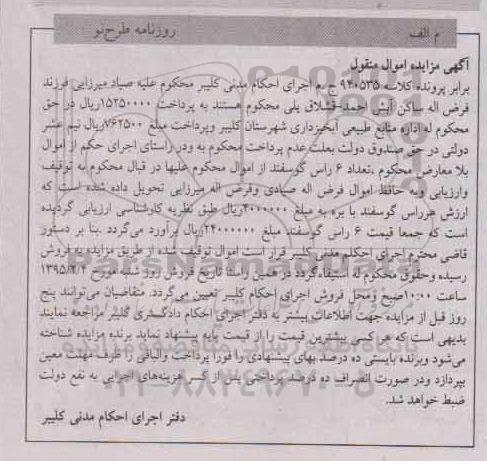 م الف
روزنامه طرح نو
آگهی مزایده اموال منقول
برابر پرونده کلاسه ۹۴۰۵۳۵ ج.م اجرای احکام مدنی کلیبر محکوم علیه صیاد میرزایی فرزند
فرض اله ساکن آبش احمد-قشلاق پلی محکوم هستند به پرداخت ۱۵۲۵۰۰۰۰ریال در حق
محکوم له اداره منابع طبیعی آبخیزداری شهرستان کلیبر وپرداخت مبلغ ۷۶۲۵۰۰ریال نیم عشر
دولتی در حق صندوق دولت بعلت عدم پرداخت محکوم به ودر راستای اجرای حکم از اموال
بلا معارض محکوم ،تعداد ۶ راس گوسفند از اموال محکوم علیها در قبال محکوم به توقیف
وارزیابی وبه حافظ اموال فرض اله صیادی وفرض اله میرزایی تحویل داده شده است که
ارزش هرراس گوسفند با بره به مبلغ ۴۰۰۰۰۰۰ریال طبق نظریه کارشناسی ارزیابی گردیده
است که جمعا قیمت ۶ راس گوسفند مبلغ ۲۴۰۰۰۰۰۰ریال برآورد می‌گردد .بنا بر دستور
قاضی محترم اجرای احکام مدنی کلیبر قرار است اموال توقیف شده از طریق مزایده به فروش
رسیده وحقوق محکوم له استیفاءگردد در همین راستا تاریخ فروش روز شنبه مورخ ۱۳۹۵/۲/۴
ساعت ۱۰:۰۰صبح ومحل فروش اجرای احکام کلیبر تعیین می‌گردد. متقاضیان می‌توانند پنج
روز قبل از مزایده جهت اطلاعات بیشتر به دفتر اجرای احکام دادگستری کلیبر مراجعه نمایند
بدیهی است که هر کسی بیشترین قیمت را از قیمت پایه پیشنهاد نماید برنده مزایده شناخته
می‌شود وبرنده بایستی ده درصد بهای پیشنهادی را فورا پرداخت والباقی را ظرف مهلت معین
بپردازد ودر صورت انصراف ده درصد پرداختی پس از کسر هزینه‌های اجرایی به نفع دولت
ضبط خواهد شد.
دفتر اجرای احکام مدنی کلیبر